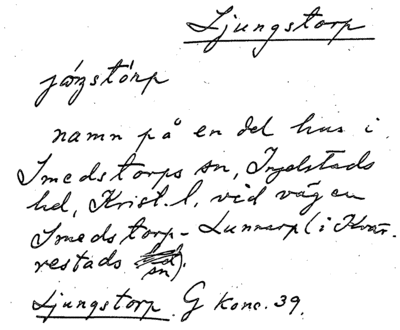 Ljungstorp
namn på en del hus i
Smedstorps sn, Ingelstads
hd, Krist. l. vid vägen
Smedstorp - Lunnarp (i Kvär-
restads sn).
Ljungstorp. G Konc. 39.